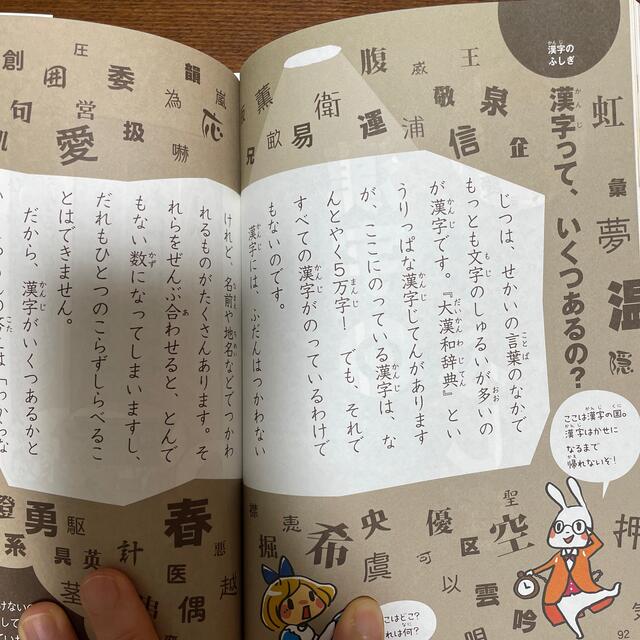 漢字の
ふしぎ
漢字って、いくつあるの?
じつは、せかいの言葉のなかで
もっとも文字のしゅるいが多いの
が漢字です。『大漢和辞典』とい
うりっぱな漢字じてんがあります
が、ここにのっている漢字は、な
んとやく5万字! でも、それで
すべての漢字がのっているわけで
もないのです。
漢字には、ふだんはつかわない
けれど、名前や地名などでつかわ
れるものがたくさんあります。そ
れらをぜんぶ合わせると、とんで
もない数になってしまいますし、
だれもひとつのこらずしらべるこ
とはできません。
だから、漢字がいくつあるかと
ここは漢字の国の
漢字はかせに
なるまで
帰れないぞ!
ここはどこ?
れは何?
92
虹
夢
温
隠
押
王
泉
企
威
敬
信
腹
浦
運
衛
易
薫
兄
圧
創
囲
委
韻
嵐
句
営
為
応
愛
扱
嚇
聖
空
優
区
雲
吟
可
以
央
虞
希
恵
掘
襟
春
悪
越
医
偶
計
駆
勇
系
具
英
茎